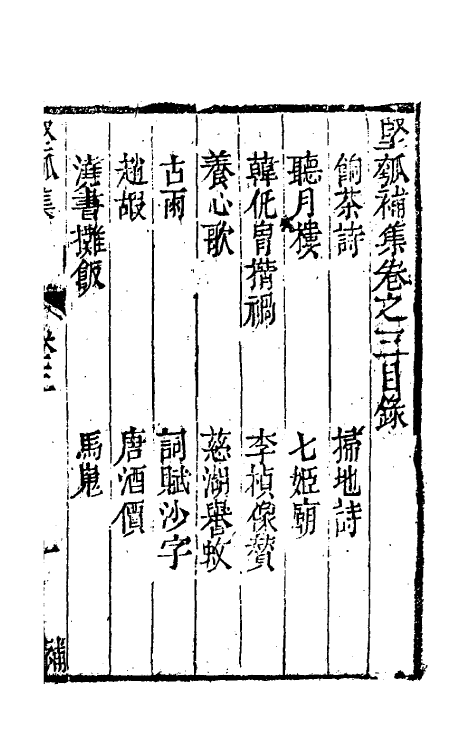 堅瓠補集卷之三目錄
餉茶詩 掃地詩
聽月樓 七姬廟
韓侂胄措禍 李楨像贊
養心歌 慈湖譽蚊
古雨 詞賦沙字
趙嘏 唐酒價
澆書攤飯 馬鬼
堅瓠集 卷三 一 補